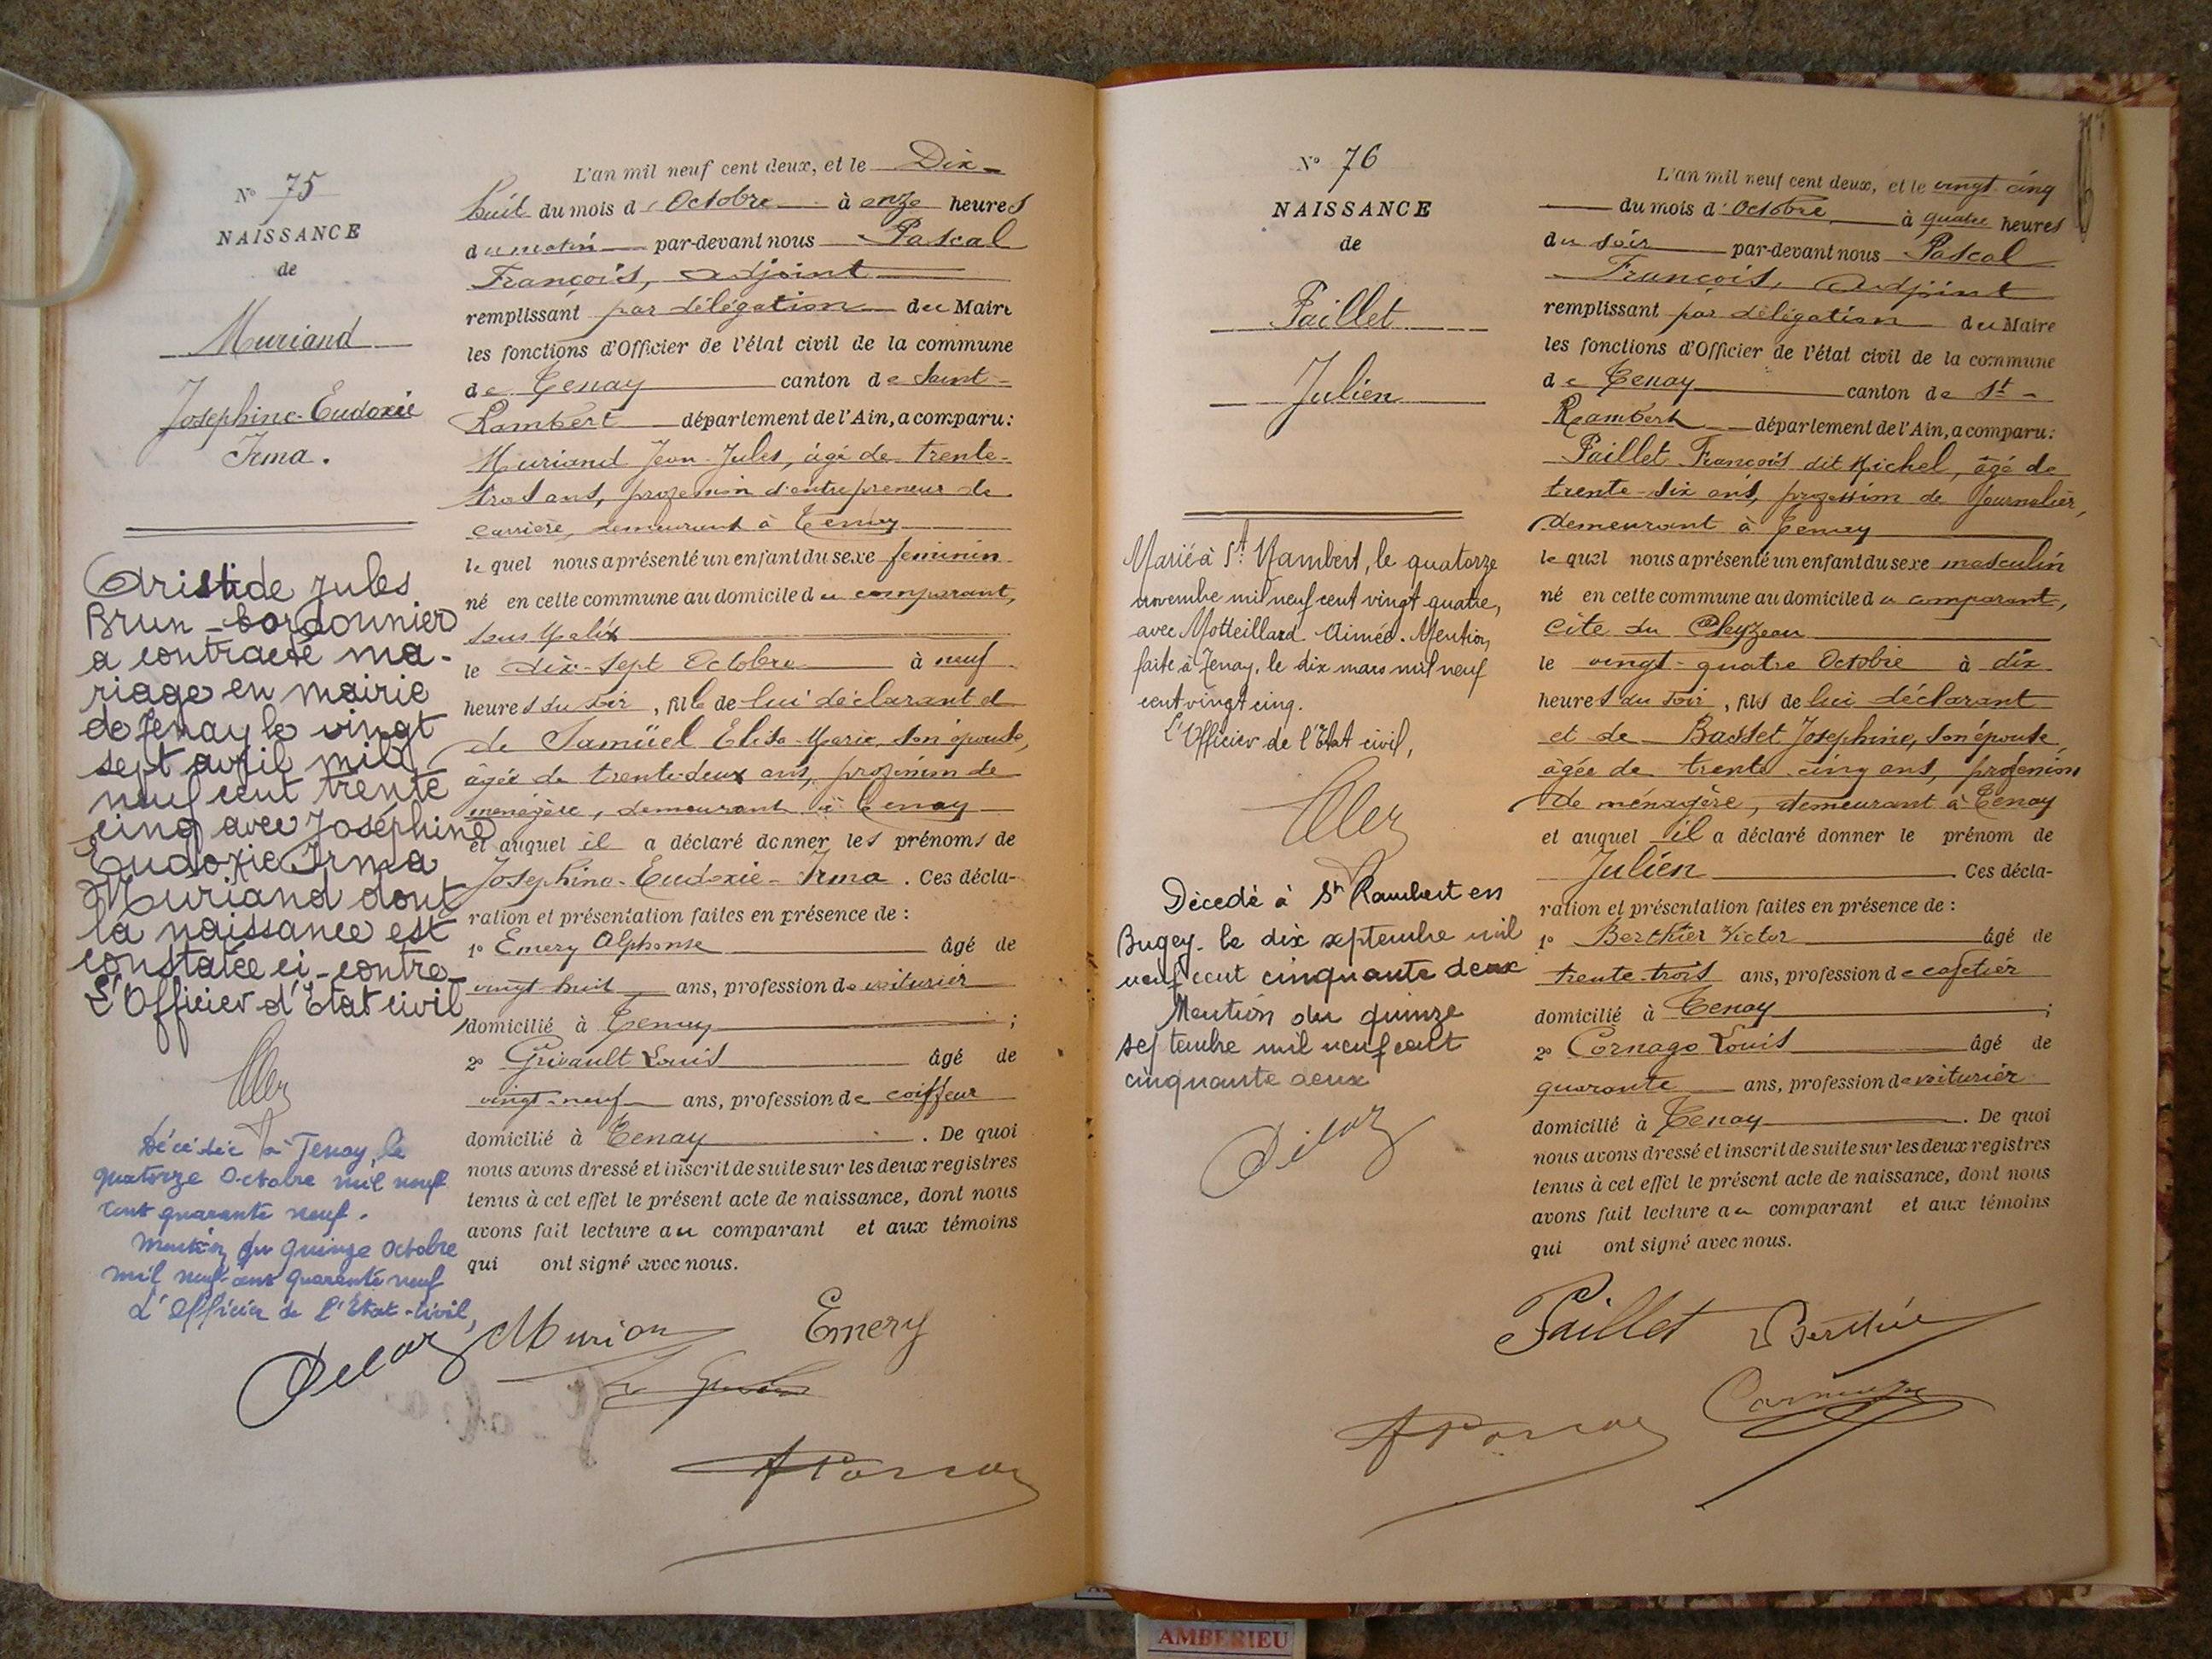 N° 75
NAISSANCE
de
Muriand
Josephine-Eudoxie
Irma.
Aristide Jules
Brun-bordonnier
a contracté ma-
riage en mairie
de Tenay le vingt
sept avril mil
neuf cent trente
cinq avec Joséphine
Eudoxie Irma
Muriand dont
la naissance est
constatée ci-contre
L'Officier d'Etat civil
Décédée à Tenay, le
quatorze Octobre mil neuf
cent quarante neuf.
Mention du quinze Octobre
mil neuf cent quarante neuf
L'Officier de l'Etat-civil,
L'an mil neuf cent deux, et le Dix-
huit du mois d'Octobre à onze heures
du matin par-devant nous Pascal
François, adjoint
remplissant par délégation du Maire
les fonctions d'Officier de l'état civil de la commune
de Tenay canton de Saint-
Rambert département de l'Ain, a comparu:
Muriand Jean-Jules, âgé de trente-
trois ans, profession d'entrepreneur de
carrière, demeurant à Tenay
lequel nous a présenté un enfant du sexe feminin
né en cette commune au domicile du comparant,
sous
le dix-sept Octobre à neuf
heures du soir, fille de lui déclarant et
de Samüel Elisa-Marie, son épouse,
âgée de trente-deux ans, profession de
menégère, demeurant à Tenay
et auquel il a déclaré donner les prénoms de
Josephine-Eudoxie-Irma. Ces décla-
ration et présentation faites en présence de :
1° Emery Alphonse âgé de
vingt-huit ans, profession de voiturier
domicilié à Tenay ;
2° Grivault Louis âgé de
vingt-neuf ans, profession de coiffeur
domicilié à Tenay . De quoi
nous avons dressé et inscrit de suite sur les deux registres
tenus à cet effet le présent acte de naissance, dont nous
avons fait lecture au comparant et aux témoins
qui ont signé avec nous.
Emery
N° 76
NAISSANCE
de
Paillet
Julien
Marié à St. Rambert, le quatorze
novembre mil neuf cent vingt quatre,
avec Motteillard Aimée. Mention
faite à Tenay, le dix mars mil neuf
cent vingt cinq.
L'Officier de l'Etat civil,
Décédé à St Rambert en
Bugey le dix septembre mil
neuf cent cinquante deux
Mention du quinze
septembre mil neuf cent
cinquante deux
L'an mil neuf cent deux, et le vingt-cinq
du mois d'Octobre à quatre heures
du soir par-devant nous Pascal
François, Adjoint
remplissant par délégation du Maire
les fonctions d'Officier de l'état civil de la commune
de Tenay canton de St-
Rambert département de l'Ain, a comparu:
Paillet François dit Michel, âgé de
trente-six ans, profession de Journalier,
demeurant à Tenay
lequel nous a présenté un enfant du sexe masculin
né en cette commune au domicile du comparant,
cité du Pleyzeau
le vingt-quatre Octobre à dix
heures du soir, fils de lui déclarant
et de Basset Josephine, son épouse
âgée de trente-cinq ans, profession
de ménagère, demeurant à Tenay
et auquel il a déclaré donner le prénom de
Julien . Ces décla-
ration et présentation faites en présence de :
1° Berthier Victor âgé de
trente-trois ans, profession de cafetier
domicilié à Tenay ;
2° Cornago Louis âgé de
quarante ans, profession de voiturier
domicilié à Tenay . De quoi
nous avons dressé et inscrit de suite sur les deux registres
tenus à cet effet le présent acte de naissance, dont nous
avons fait lecture au comparant et aux témoins
qui ont signé avec nous.
Paillet Berthier
AMBERIEU